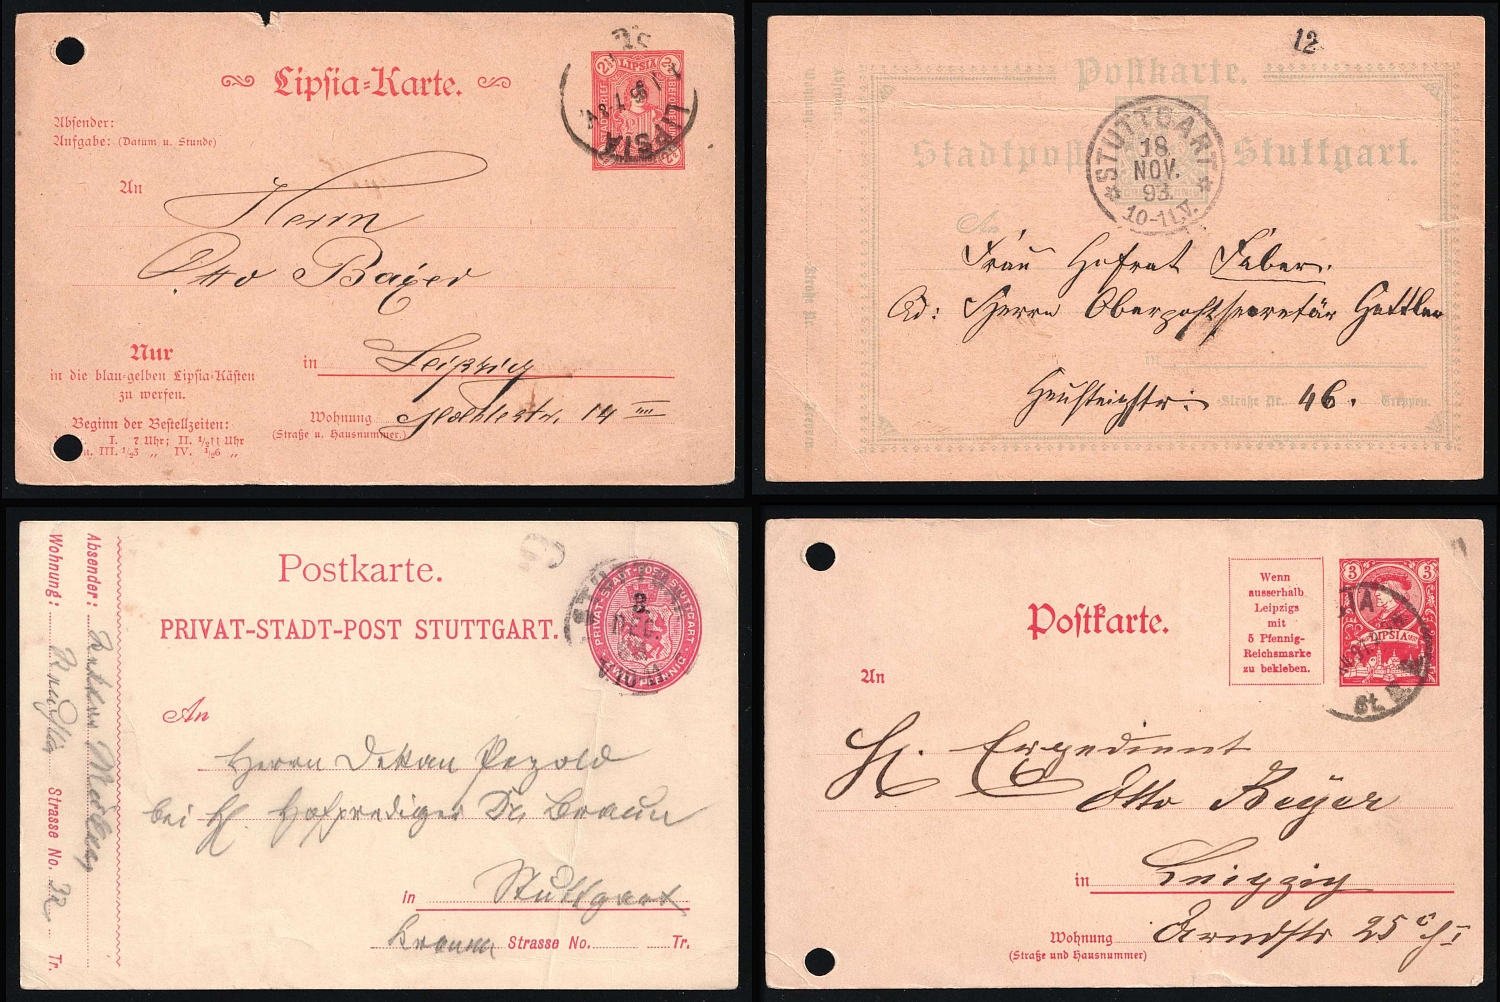 Lipsia-Karte.
Absender:
Aufgabe: (Datum u. Stunde)
2½ LIPSIA 2½
LIPSIA
An
Herrn
Otto Bayer
in Leipzig
Nur
in die blau-gelben Lipsia-Kästen
zu werfen.
Beginn der Bestellzeiten:
I. 7 Uhr; II. ½11 Uhr
u. III. ½3 „ IV. ½6 „
Wohnung 14 IIII
(Straße u. Hausnummer.)
12
Postkarte.
Stadtpost Stuttgart.
STUTTGART
18.
NOV.
93.
10-11.V.
An
Frau Hofrat Faber.
Ad: Herrn Oberpostsecretär Hettler
in
Heusteigstr. Straße Nr. 46. Treppen.
Absender:
Wohnung:
Straße Nr.
Postkarte.
PRIVAT-STADT-POST STUTTGART.
PRIVAT-STADT-POST STUTTGART
PFENNIG
3.
DEC.
An
Herrn Dekan Pezold
bei H. Hofprediger Dr. Braun
in Stuttgart
Strasse No. Tr.
Absender:
Wohnung: Strasse No. Tr.
Postkarte.
Wenn
ausserhalb
Leipzigs
mit
5 Pfennig-
Reichsmarke
zu bekleben.
3 3
LIPSIA
An
H. Expedient
Otto Beyer
in Leipzig
Wohnung Arndtstr 25
(Straße und Hausnummer)